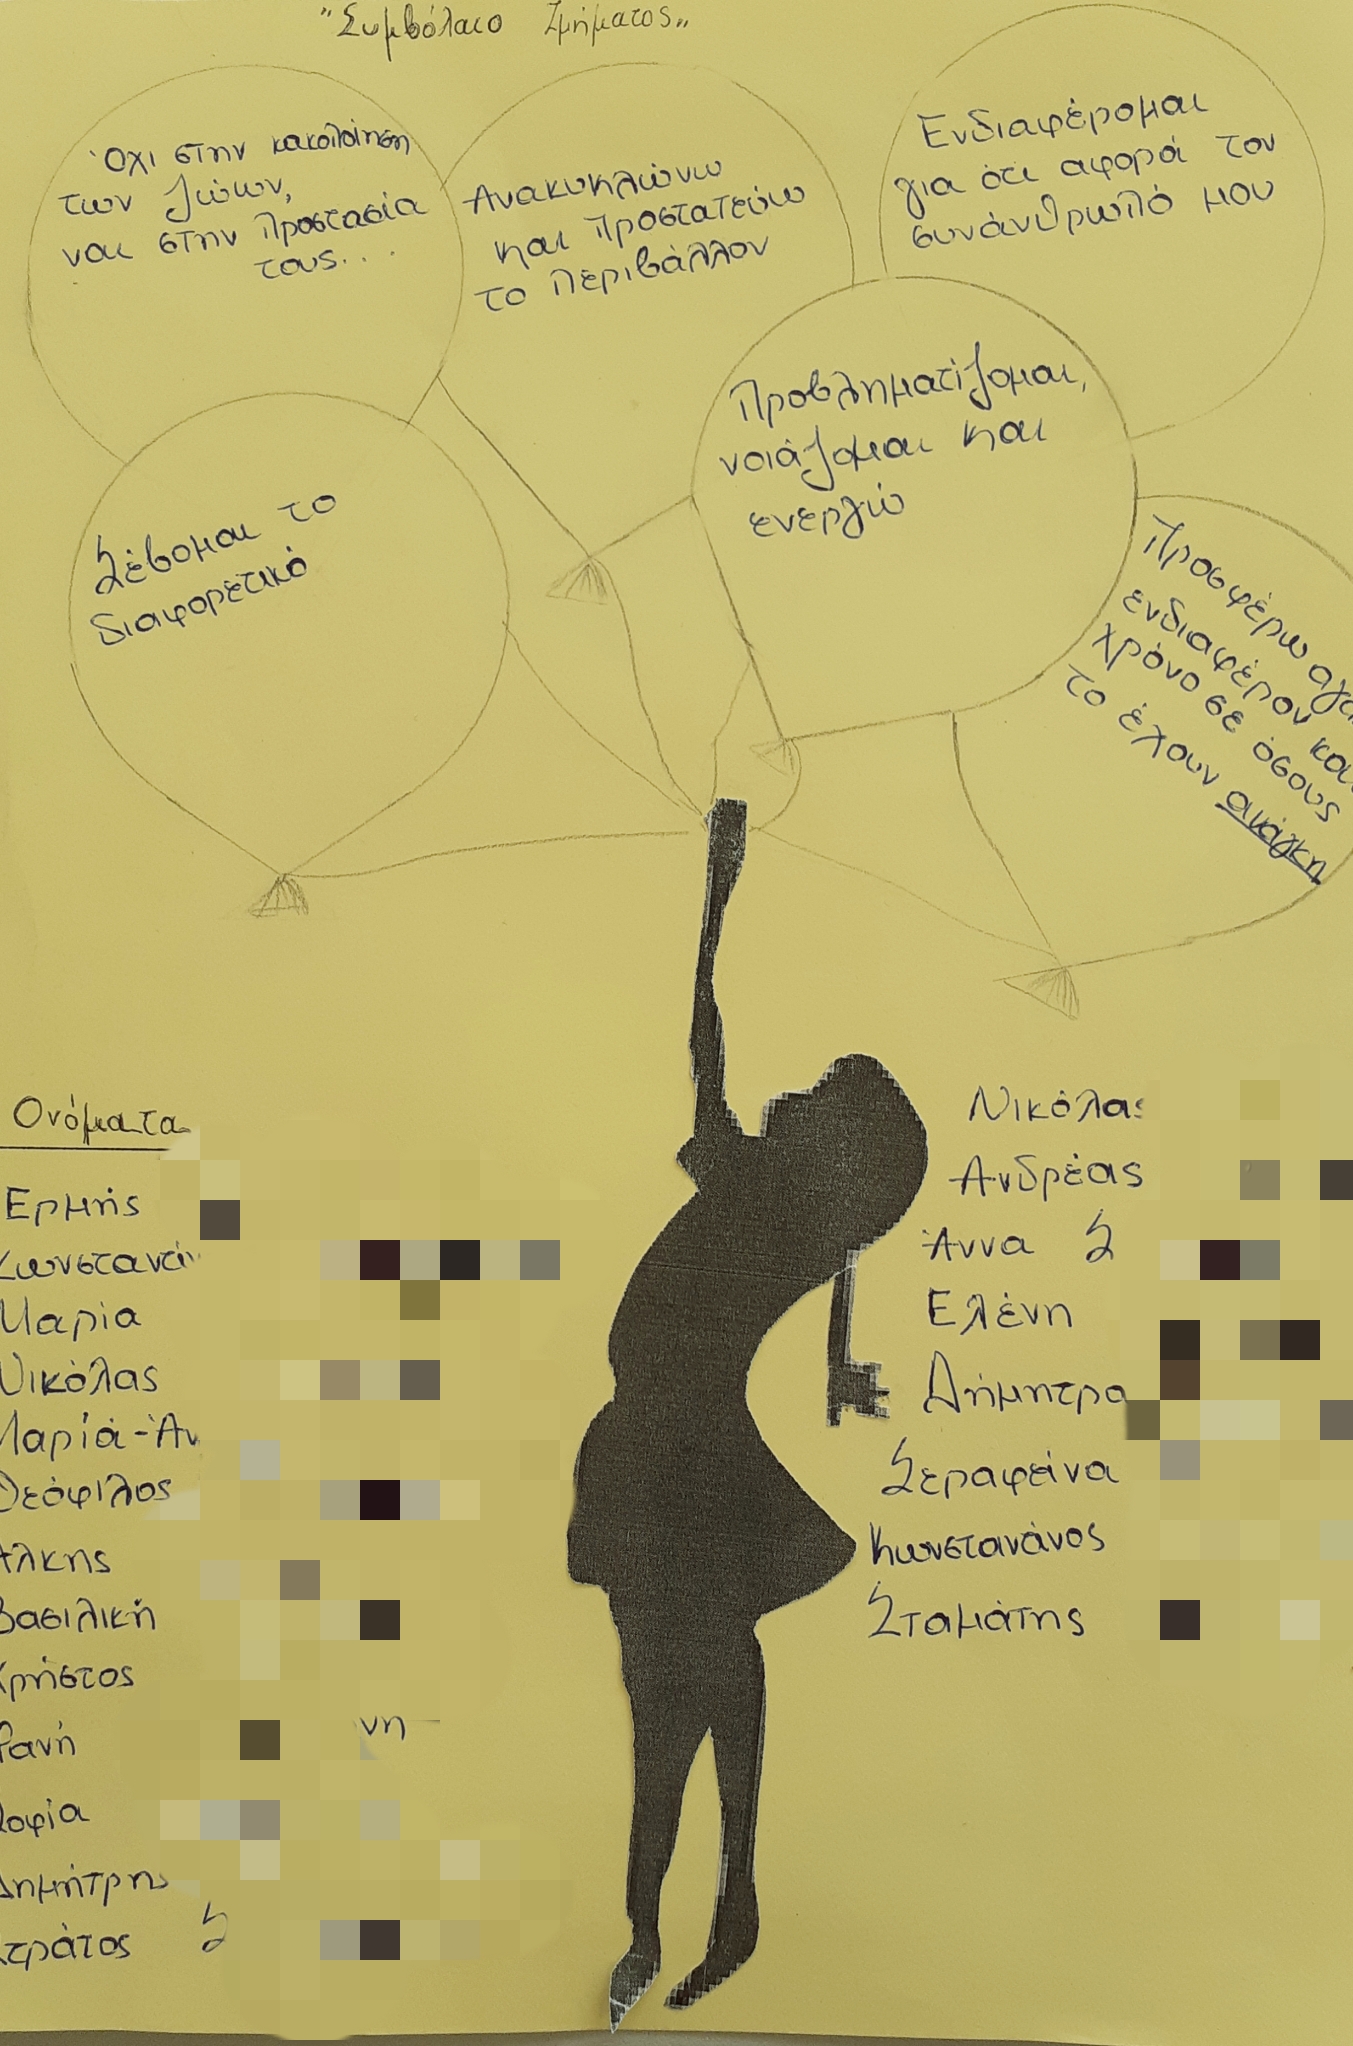 "Συμβόλαιο Τμήματος"
Όχι στην κακοποίηση
των ζώων,
ναι στην προστασία
τους...
Ανακυκλώνω
και προστατεύω
το περιβάλλον
Ενδιαφέρομαι
για ότι αφορά τον
συνάνθρωπό μου
Σέβομαι το
διαφορετικό
Προβληματίζομαι,
νοιάζομαι και
ενεργώ
Προσφέρω
ενδιαφέρον και
χρόνο σε όσους
το έχουν ανάγκη
Ονόματα
Ερμής
Κωνσταντίν
Μαρία
Νικόλας
Μαρία-Άν
Θεόφιλος
Άλκης
Βασιλική
Χρήστος
Φανή
νη
Σοφία
Δημήτρης
Στράτος Σ
Νικόλας
Ανδρέας
Άννα Σ
Ελένη
Δήμητρα
Σεραφείνα
Σταμάτης